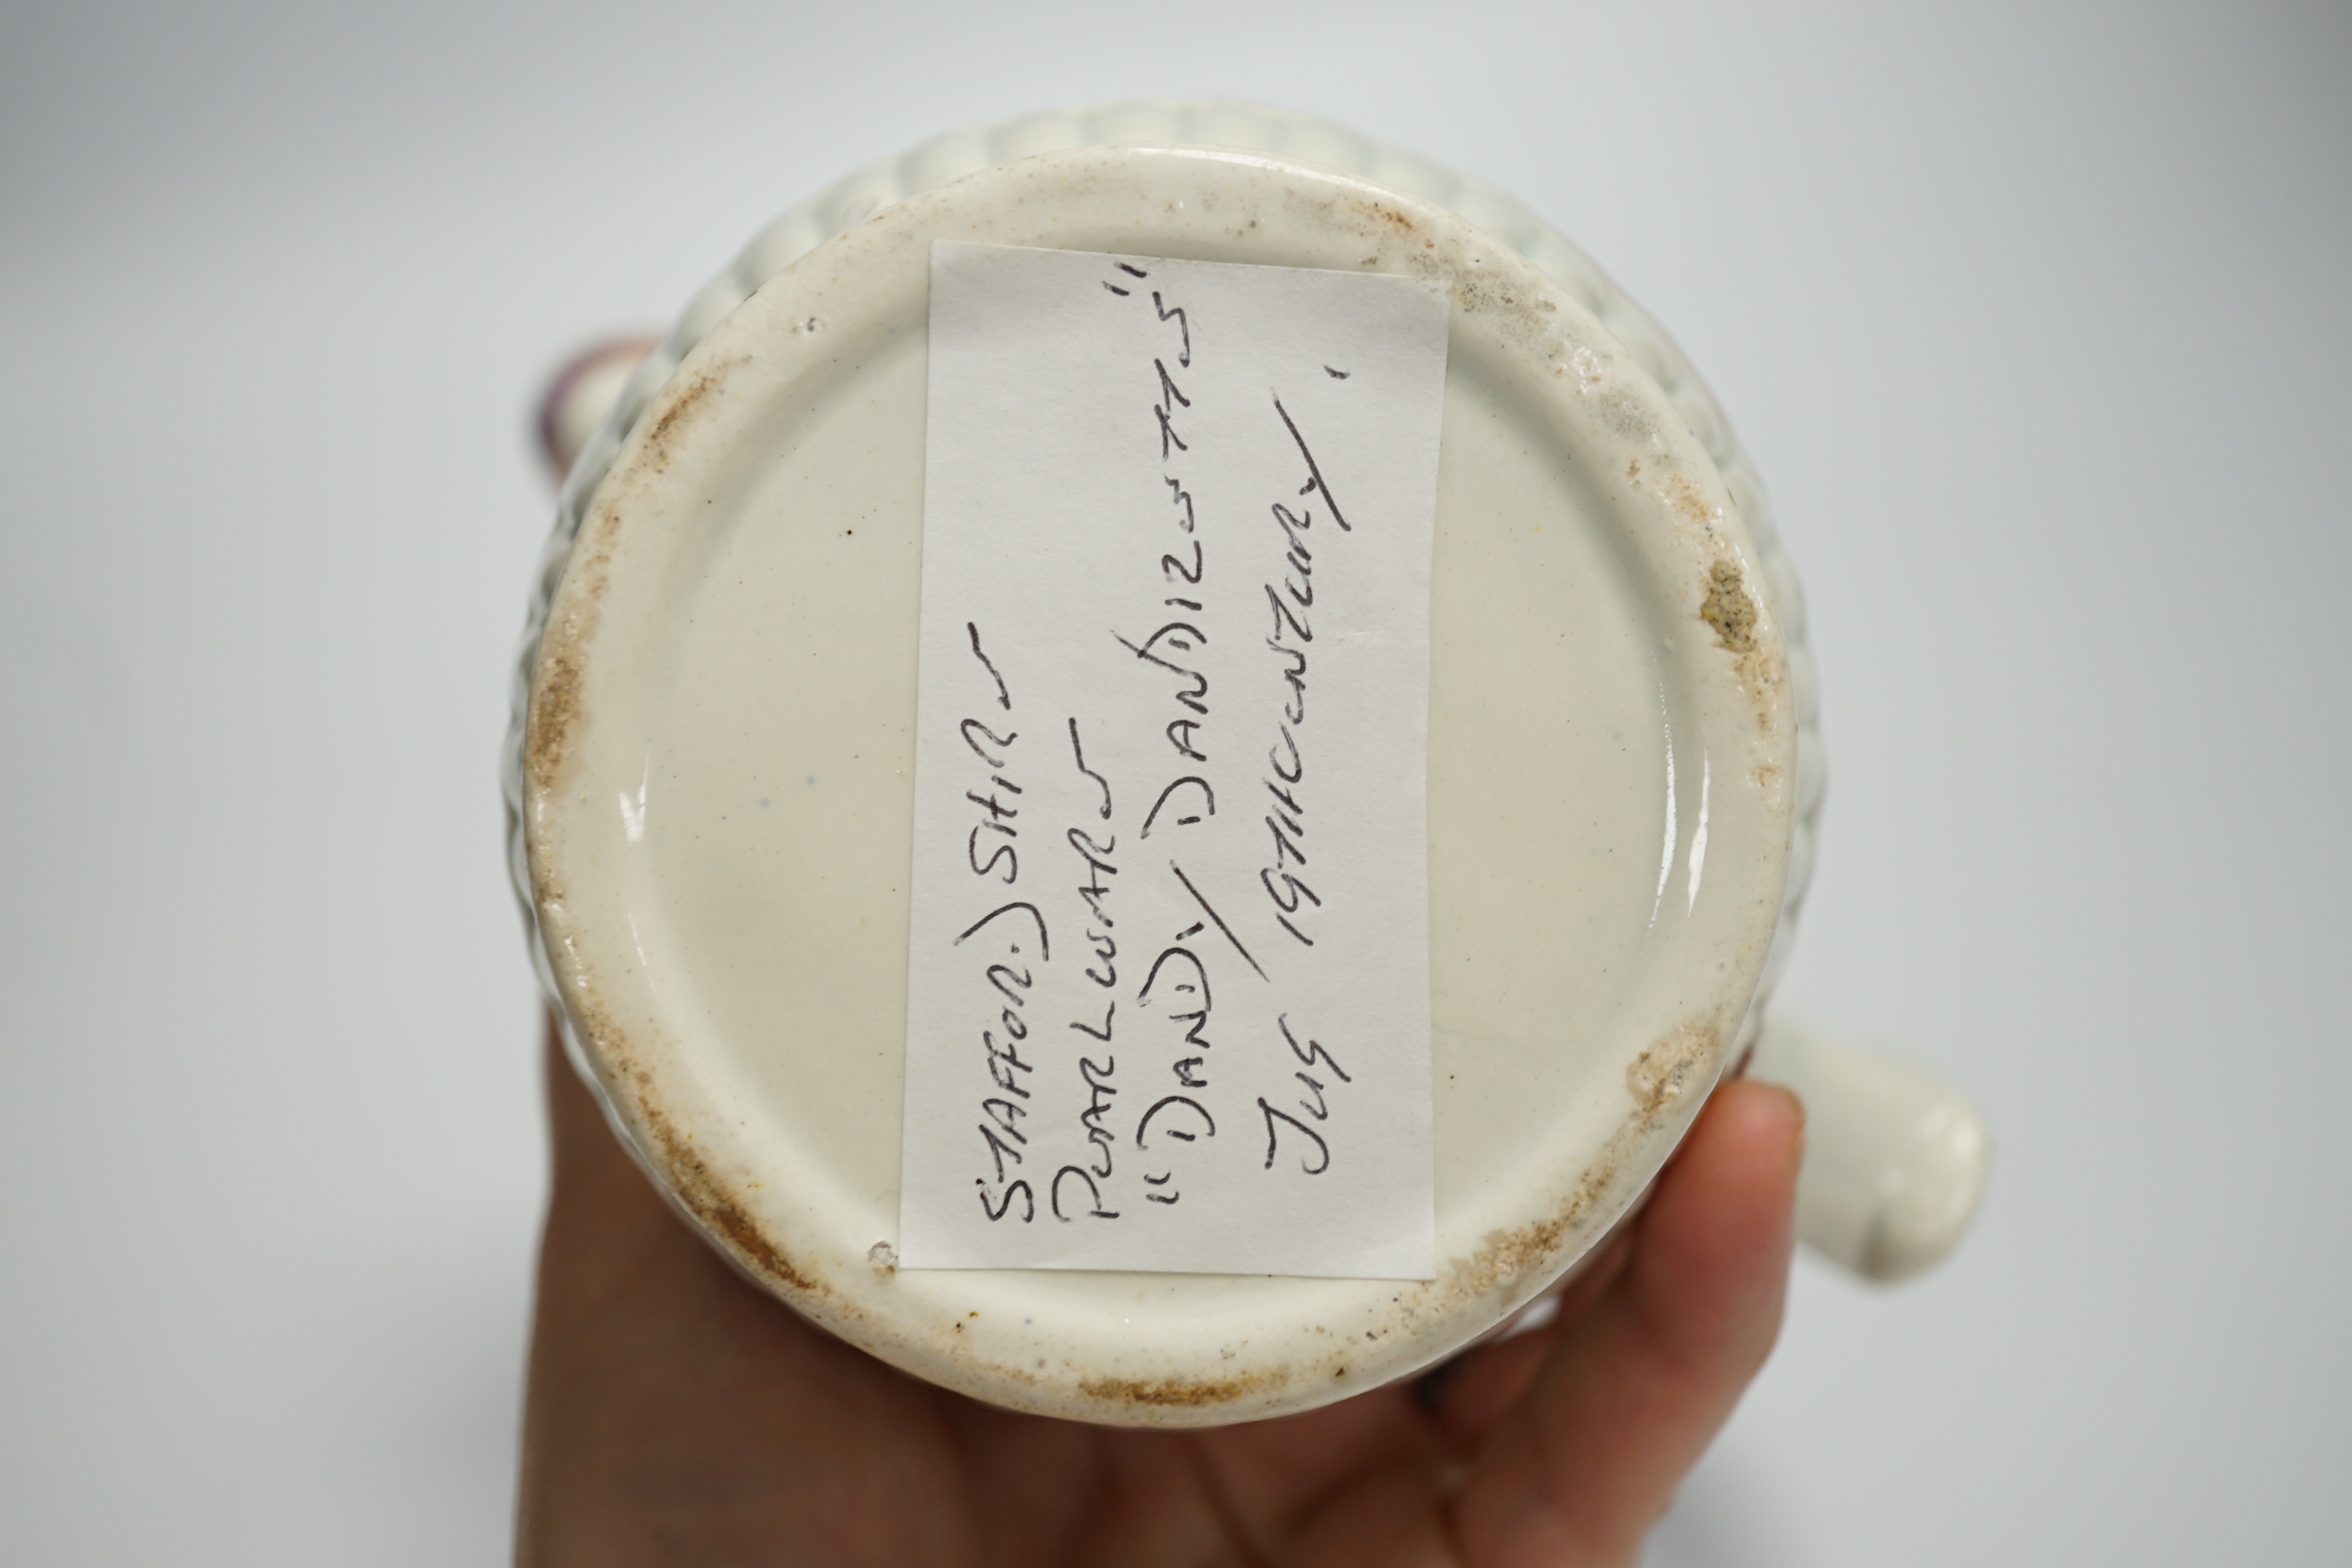 STAFFORDSHIRE
PEARLWARE
"DANDY DANDIZETTES"
JUG 19THCENTURY.